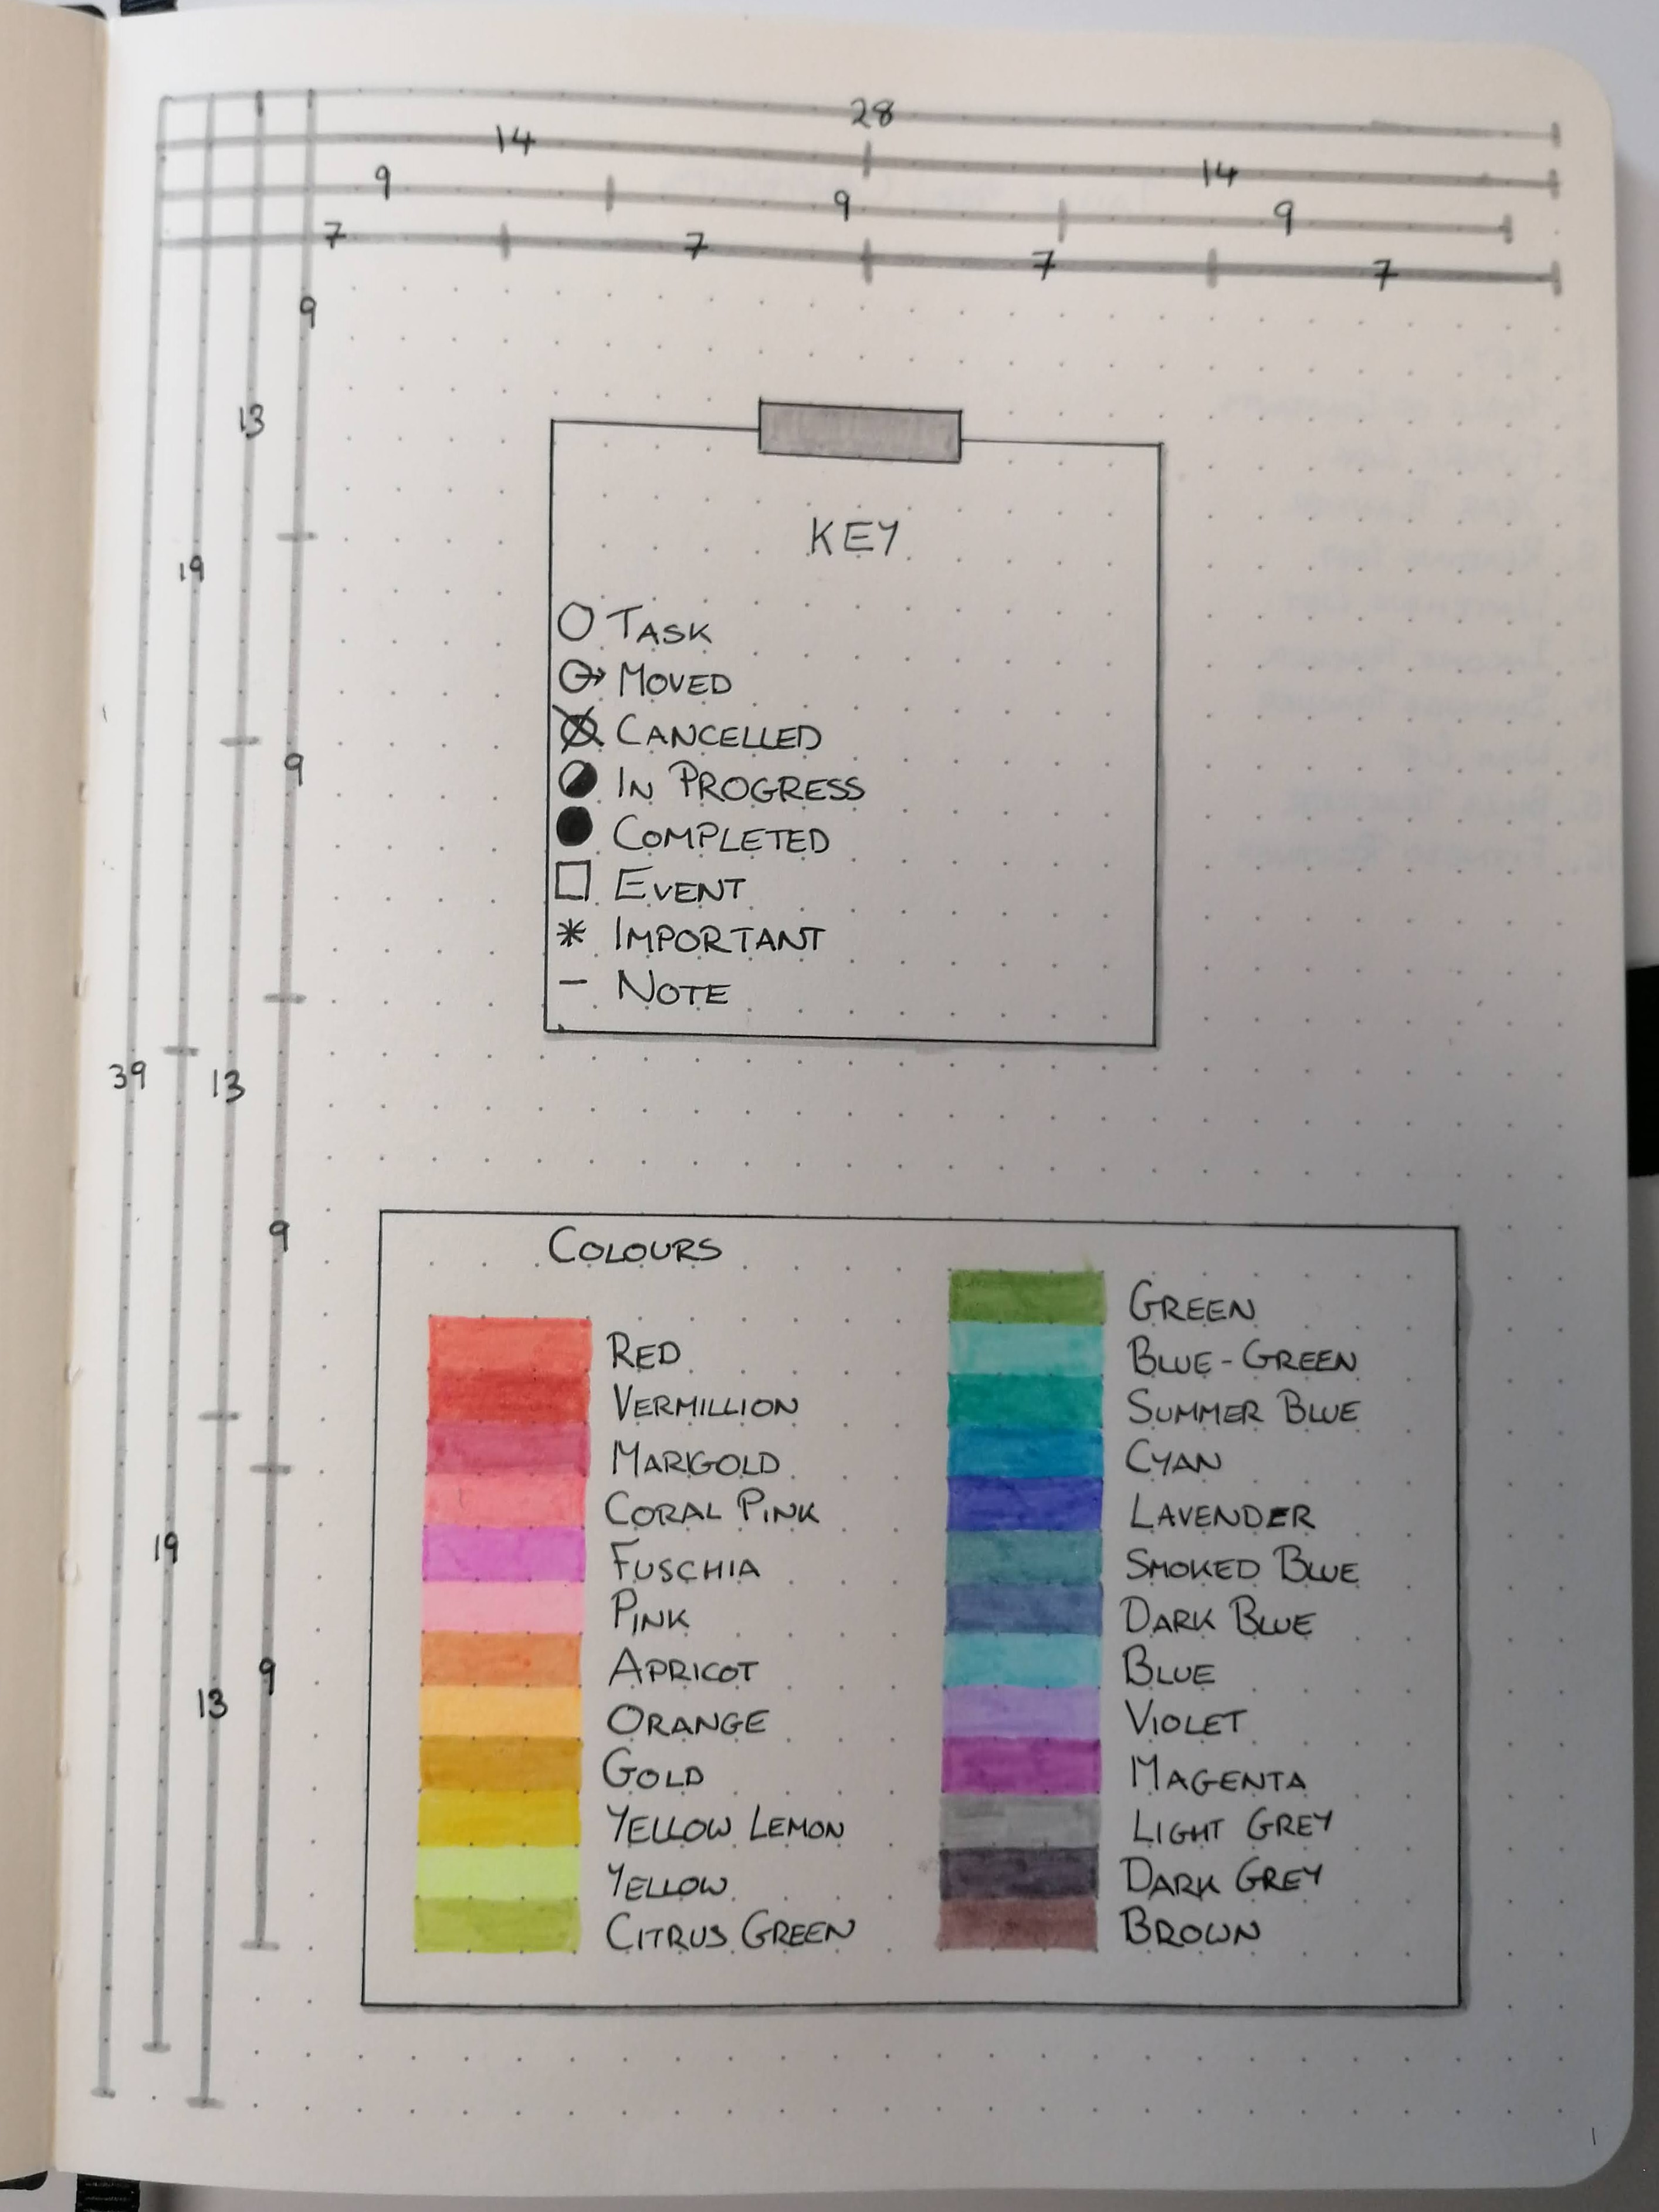 28
14 14
9 9 9
7 7 7 7
9
13
19
9
39 13
9
19
9
13
KEY
TASK
MOVED
CANCELLED
IN PROGRESS
COMPLETED
EVENT
* IMPORTANT
– NOTE
COLOURS
RED
VERMILLION
MARIGOLD
CORAL PINK
FUSCHIA
PINK
APRICOT
ORANGE
GOLD
YELLOW LEMON
YELLOW
CITRUS GREEN
GREEN
BLUE-GREEN
SUMMER BLUE
CYAN
LAVENDER
SMOKED BLUE
DARK BLUE
BLUE
VIOLET
MAGENTA
LIGHT GREY
DARK GREY
BROWN
1